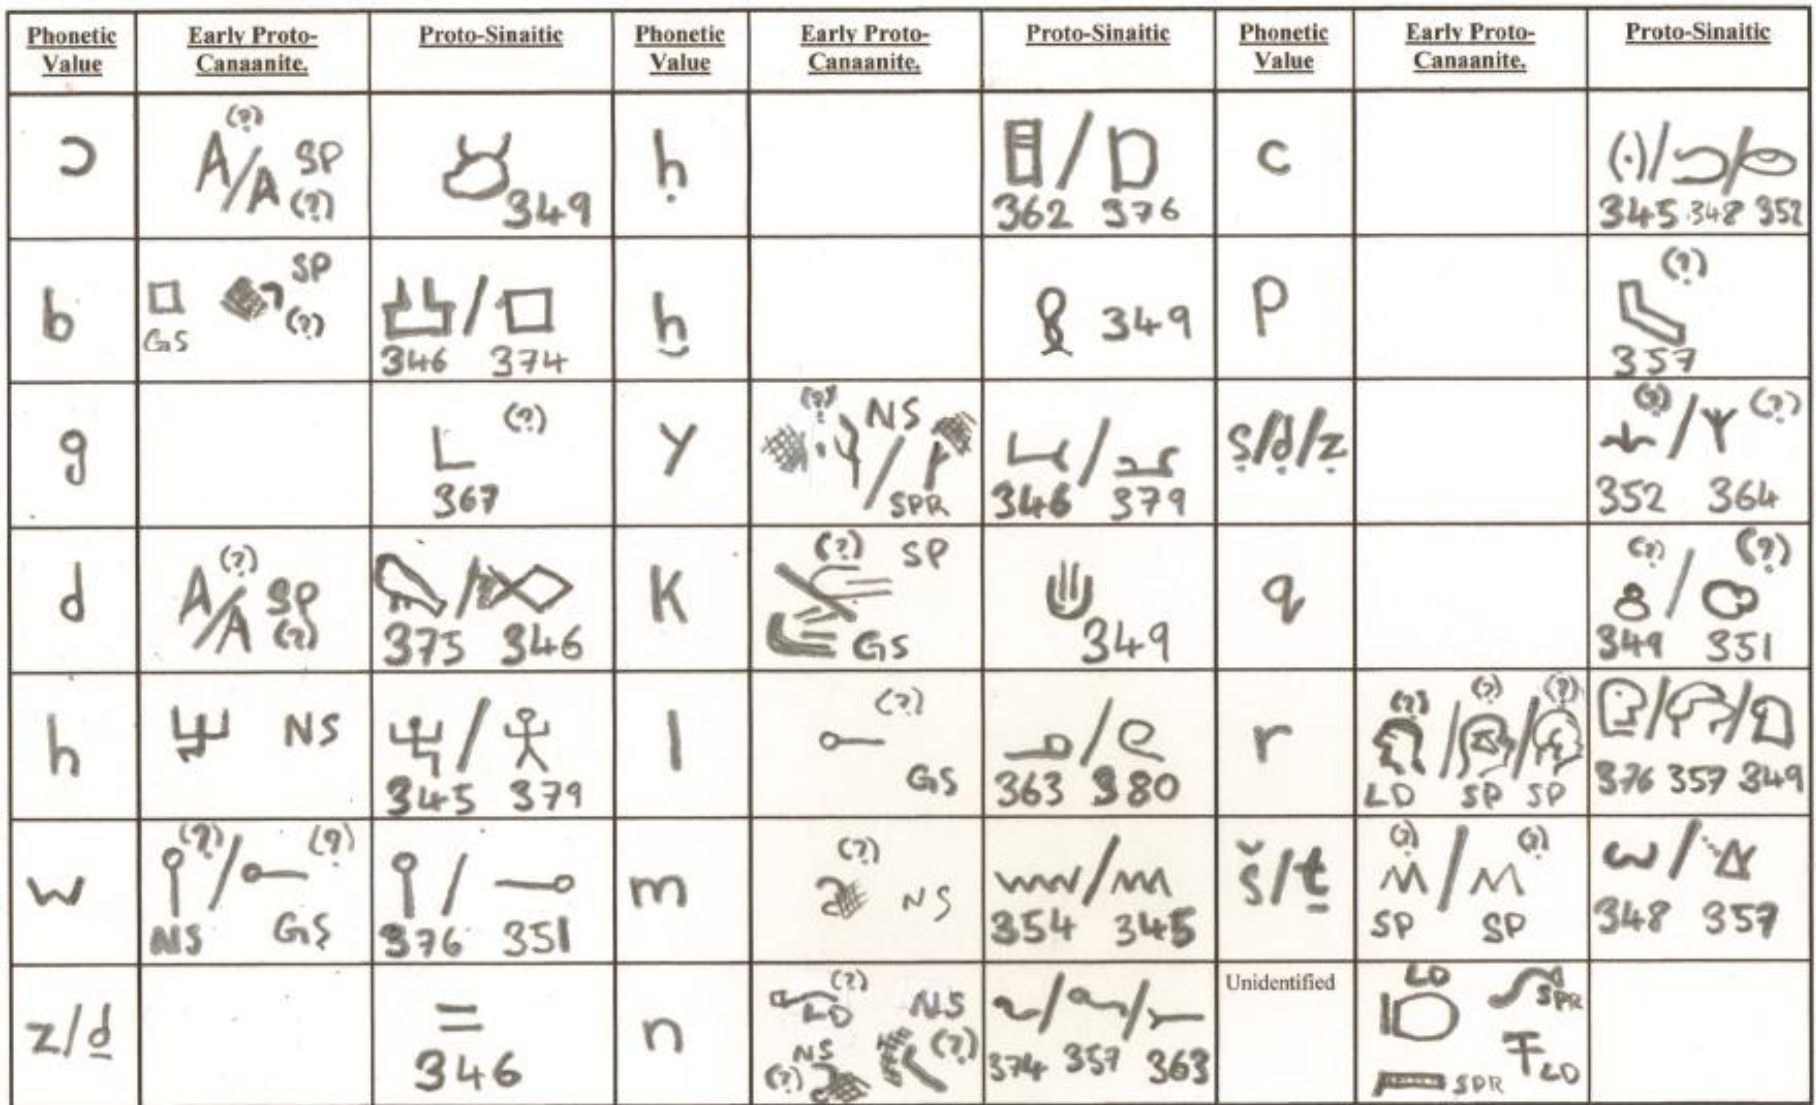 Phonetic Value Early Proto-Canaanite. Proto-Sinaitic Phonetic Value Early Proto-Canaanite. Proto-Sinaitic Phonetic Value Early Proto-Canaanite. Proto-Sinaitic
ɔ (?) A/A SP (?) 349 ḥ 362 / 376 c (·)/ / 345 348 352
b GS SP (?) 346 / 374 ḫ 349 p (?) 357
g (?) 367 y (?) NS / SPR 346 / 379 ṣ/ḍ/ẓ (?) / (?) 352 364
d (?) A/A SP (?) 375 / 346 k (?) SP GS 349 q (?) / (?) 349 351
h NS 345 / 379 l (?) GS 363 / 380 r (?) / (?) / (?) LD SP SP 376 / 357 / 349
w (?) / (?) NS GS 376 / 351 m (?) NS 354 / 345 š/ṯ (?) / (?) SP SP 348 / 357
z/ḏ 346 n (?) LD NS NS (?) (?) 374 / 357 / 363 Unidentified LD SPR LD SPR